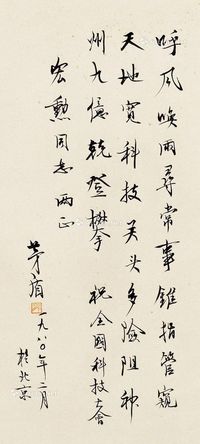 呼风唤雨寻常事锥指管窥
天地宽科技关头多险阻神
州九億兢登攀 祝全国科技大会
宏勲同志两正
茅盾
一九八〇年二月
於北京